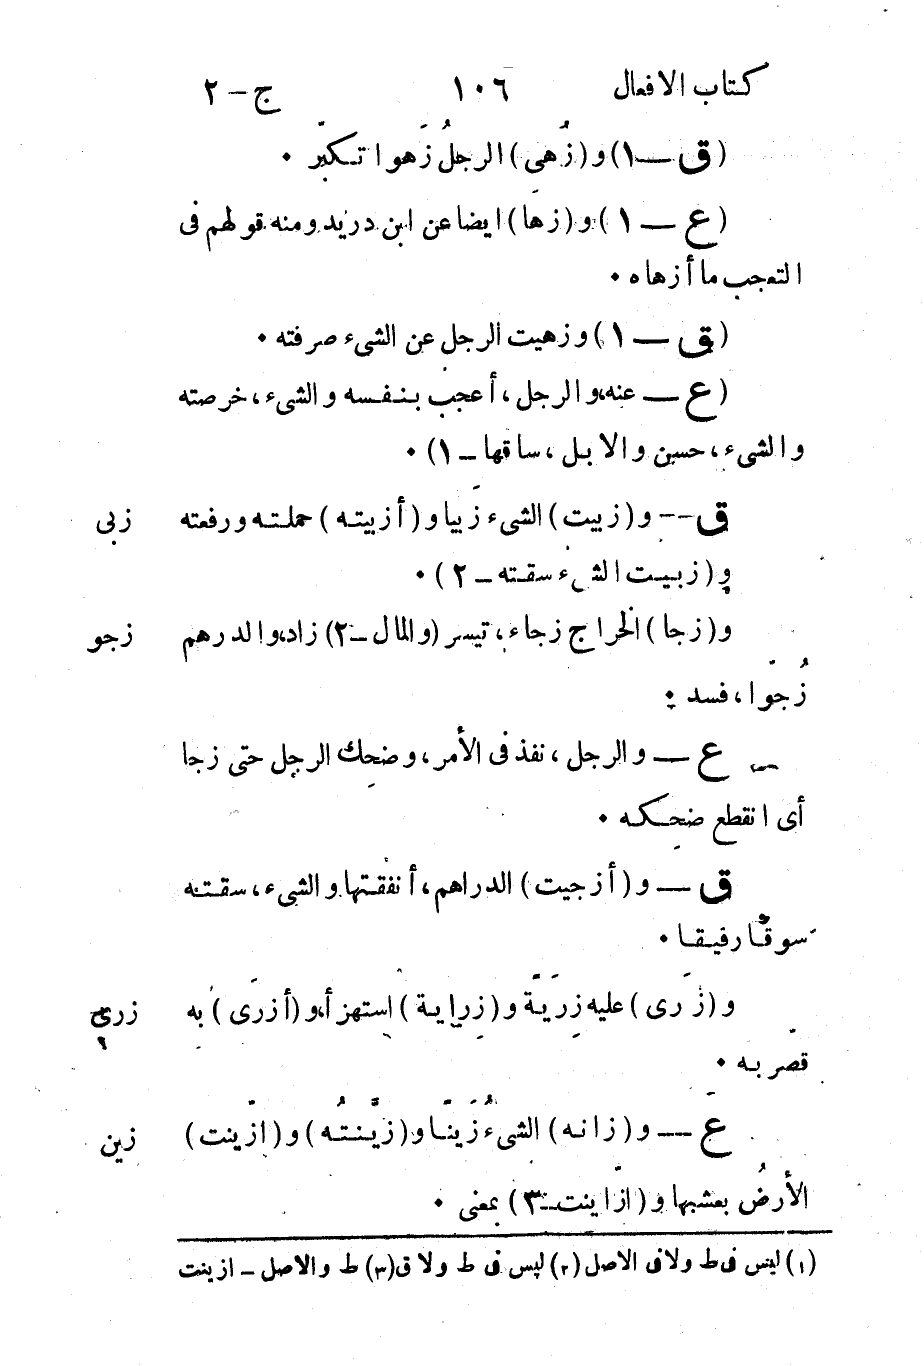 كتاب الافعال ١٠٦ ج-٢
(ق ــ ١) و (زُهى) الرجلُ زَهوا تكبّر ٠
(ع ــ ١) و (زهَا) ايضا عن ابن دريد ومنه قولهم فى
التعجب ما أزهاه ٠
(ق ــ ١) وزهيت الرجل عن الشىء صرفته ٠
(ع ــ عنه، والرجل، أعجب بنفسه والشىء، خرصته
والشىء، حسن والابل، ساقها ــ ١) ٠
ق -- و (زبيت) الشىء زَبيا و (أزبيته) حملته ورفعته زبى
و (زبيت الشىء سقته ــ ٢) ٠
و (زجا) الخراج زجاء، تيسر (والمال ــ٢) زاد، والدرهم زجو
زُجوّا، فسد ٠
ع ــ والرجل، نفذ فى الأمر، وضحك الرجل حتى زجا
أى انقطع ضحكه ٠
ق ــ و (أزجيت) الدراهم، أنفقتها والشىء، سقته
سوقًا رفيقا ٠
و (زَرى) عليه زرَيّة و (زِراية) استهزأ، و (أزرَى) به زرى
قصّر به ٠
ع ــ و (زانه) الشىءُ زَينًا و (زيَّنتُه) و (ازّينت) زين
الأرضُ بعشبها و (ازّاينت ــ٣) بمعنى ٠
(١) ليس فى ط ولا فى الاصل (٢) ليس فى ط ولا ق (٣) ط والاصل ــ ازينت